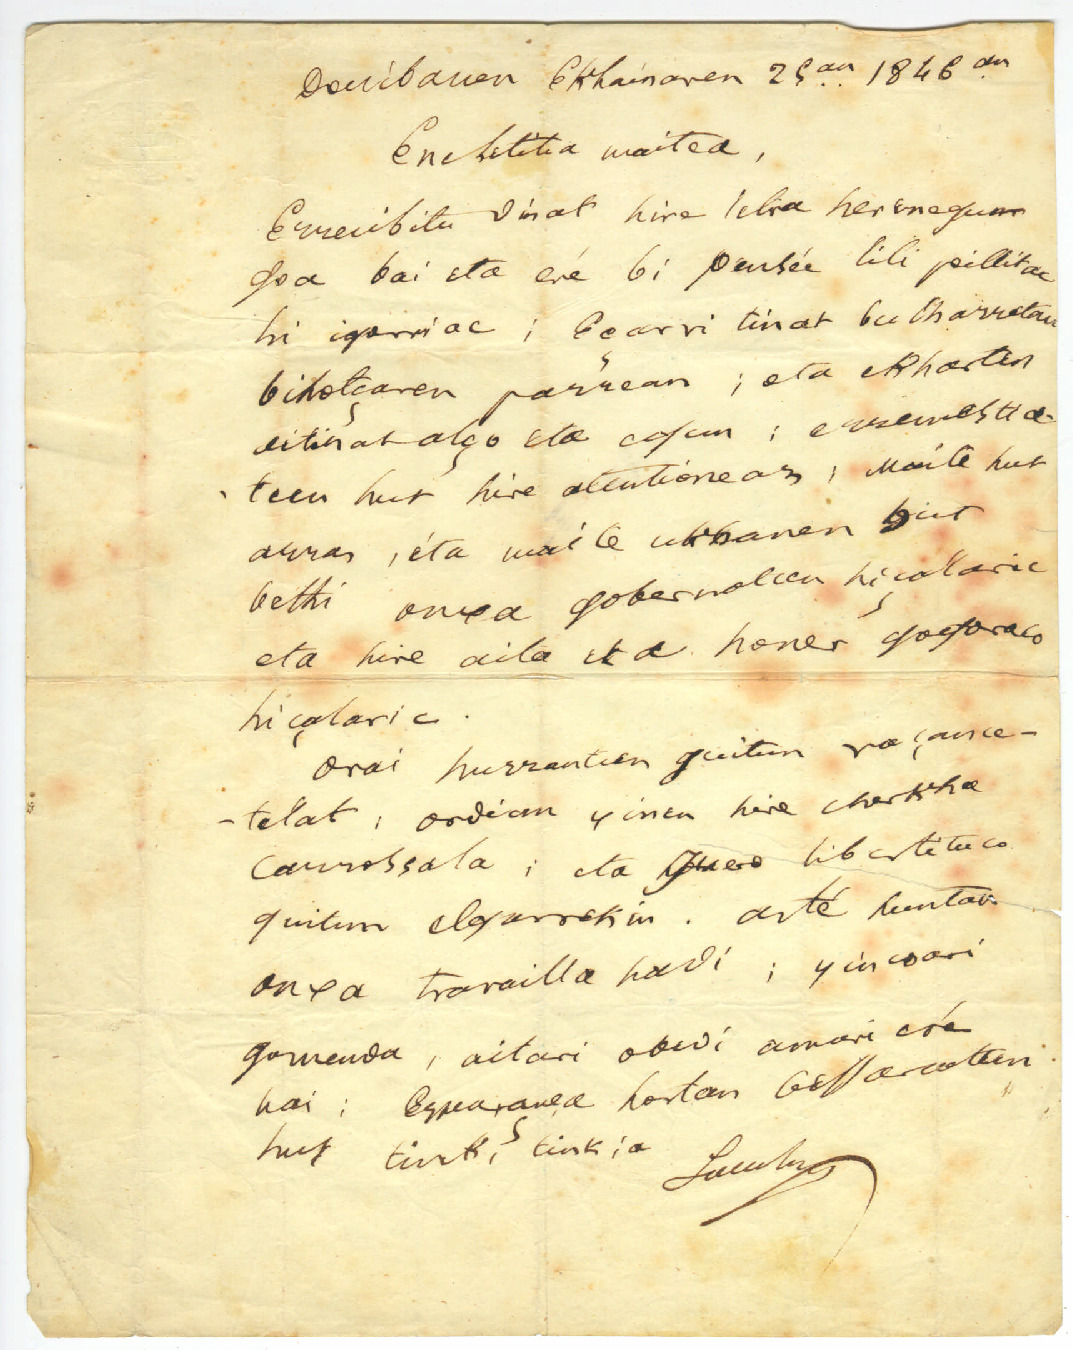 Donibanen Ekhainaren 25an 1846an
Ene Letitia maitea,
Errecibitu dinat hire letra herenegun
goa bai eta ere bi pensée lili pollitac
hi igorriac ; Eçarri tinat bulharretan
bihotçaren parrean ; eta ekharten
ditinat algo eta egun ; erremestia-
tcen hut hire atentioneaz ; Maite hut
arras , eta maite ukhanen hut
bethi onxa gobernatcen hiçalaric
eta hire aita eta honer gogoraco
hiçalaric .
Orai hurrantcen guitun vaçance-
-telat ; ordian yinen hire cherkha
carrossala ; eta guero libertituco
guitun elgarrekin . arte huntan
onxa travailla hadi ; yincoari
gomenda , aitari obedi amari ere
bai ; Esperança hortan bessarcatcen
hut tinki, tinkia